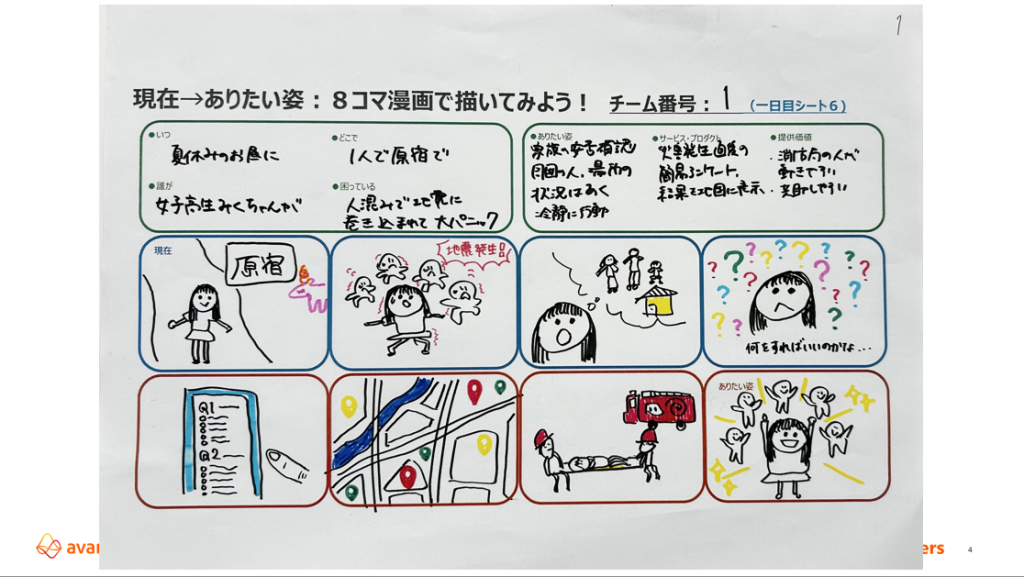 1
現在→ありたい姿：８コマ漫画で描いてみよう！ チーム番号：1 （一日目シート６）
●いつ
夏休みのお昼に
●どこで
1人で原宿で
●誰が
女子高生みくちゃんが
●困っている
人混みで地震に
巻き込まれて大パニック
●ありたい姿
家族の安否確認
周囲の人、場所の
状況はあく
冷静に行動
●サービス・プロダクト
災害発生直後の
簡易アンケート、
結果を地図に表示、
●提供価値
・消防局の人が
動きやすい
・支助しやすい
現在
原宿
地震発生!!
? ? ? ? ? ? ? ? ? ? ? ? ? ? ?
何をすればいいのかなぁ...
Q1
Q2
ありたい姿
avan
ers
4